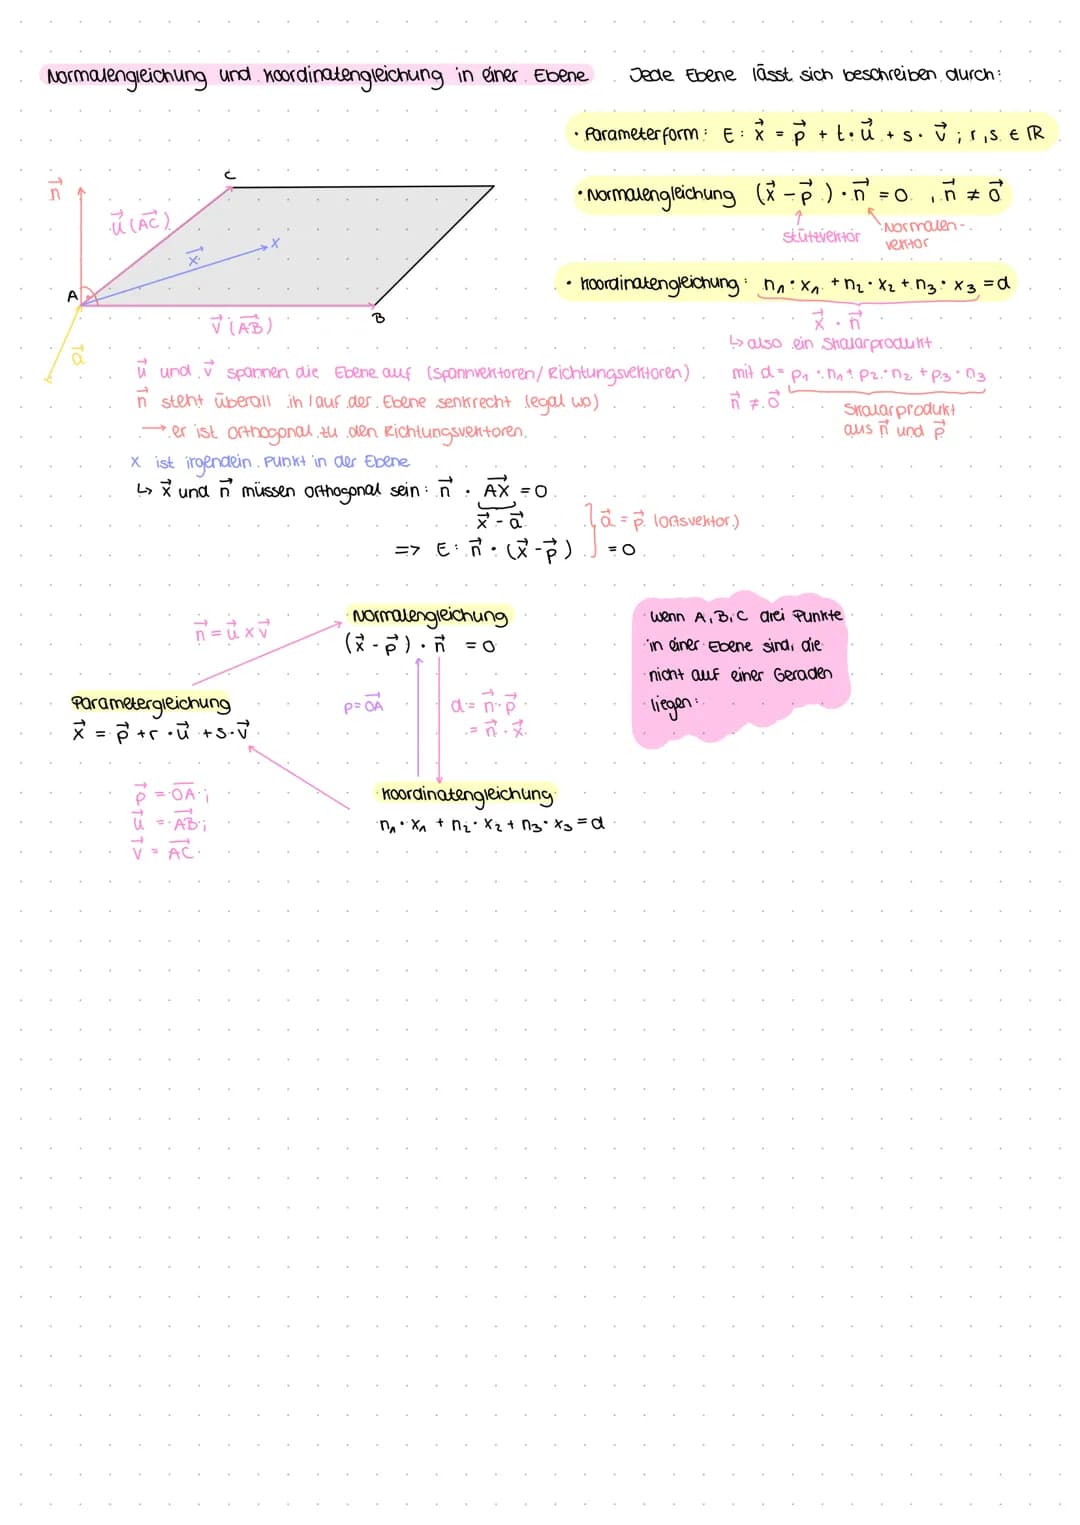 Normalengleichung und Koordinatengleichung in einer Ebene
Jede Ebene lässt sich beschreiben durch:
• Parameterform: E: x⃗ = p⃗ + t · u⃗ + s · v⃗ ; r, s ∈ ℝ
• Normalengleichung (x⃗ - p⃗) · n⃗ = 0 , n⃗ ≠ o⃗
Stützvektor
Normalen-
vektor
• Koordinatengleichung: n₁ · x₁ + n₂ · x₂ + n₃ · x₃ = d
x⃗ · n⃗
↳ also ein Skalarprodukt
mit d = p₁ · n₁ + p₂ · n₂ + p₃ · n₃
n⃗ ≠ o⃗
Skalarprodukt
aus n⃗ und p⃗
n⃗
C
u⃗ (AC⃗)
x⃗
x
A
v⃗ (AB⃗)
B
a⃗
u⃗ und v⃗ spannen die Ebene auf (Spannvektoren/Richtungsvektoren)
n⃗ steht überall in/auf der Ebene senkrecht (egal wo)
→ er ist orthogonal zu den Richtungsvektoren.
x ist irgendein Punkt in der Ebene
↳ x⃗ und n⃗ müssen orthogonal sein: n⃗ · AX⃗ = 0
x⃗ - a⃗
} a⃗ = p⃗ (Ortsvektor)
=> E: n⃗ · (x⃗ - p⃗) = 0
n⃗ = u⃗ x v⃗
Normalengleichung
(x⃗ - p⃗) · n⃗ = 0
Parametergleichung
x⃗ = p⃗ + r · u⃗ + s · v⃗
p = OA⃗
d = n⃗ · p⃗
= n⃗ · x⃗
p⃗ = OA⃗ ;
u⃗ = AB⃗ ;
v⃗ = AC⃗
Koordinatengleichung
n₁ · x₁ + n₂ · x₂ + n₃ · x₃ = d
wenn A, B, C drei Punkte
in einer Ebene sind, die
nicht auf einer Geraden
liegen: